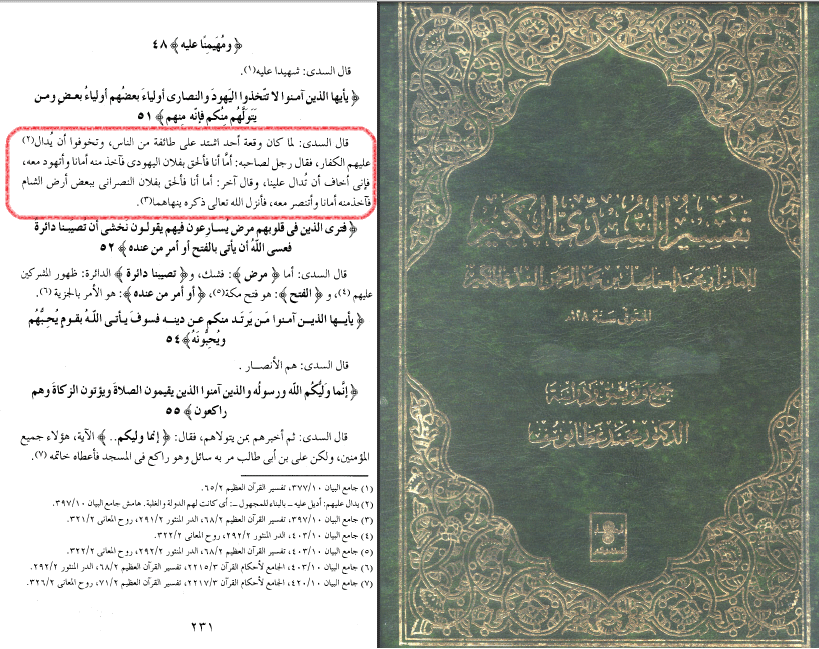 ﴿ ومُهَيمِنًا عليه ﴾ ٤٨
قال السدى: شهيدا عليه(١).
﴿ يأيها الذين آمنوا لا تتّخذوا اليَهودَ والنصارى أولياءَ بعضُهم أولياءُ بعضٍ ومن
يَتَولَّهُم مِنْكم فإنَّه مِنهم ﴾ ٥١
قال السدى: لما كان وقعة أحد اشتد على طائفة من الناس، وتخوفوا أن يُدال(٢)
عليهم الكفار، فقال رجل لصاحبه: أمَّا أنا فألحق بفلان اليهودى فآخذ منه أمانا وأتهود معه،
فإنى أخاف أن تُدال علينا، وقال آخر: أما أنا فألحق بفلان النصرانى ببعض أرض الشام
فآخذمنه أمانا وأتنصر معه، فأنزل الله تعالى ذكره ينهاهما(٣).
﴿ فترى الذين فى قلوبهم مرضٌ يُسارِعون فيهم يقولون نَخشى أن تصيبنا دائرةٌ
فعسى اللَّهُ أن يأتى بالفتح أو أمرٍ من عنده ﴾ ٥٢
قال السدى: أما ﴿ مرض ﴾: فشك، و﴿ تصيبنا دائرة ﴾ الدائرة: ظهور المشركين
عليهم (٤)، و ﴿ الفتح ﴾: هو فتح مكة(٥)، ﴿ أو أمر من عنده ﴾: هو الأمر بالجزية (٦).
﴿ يأيها الذين آمنوا مَن يَرتَد منكم عن دينه فسوف يأتى اللَّهُ بقوم يُحِبُّهُم
ويُحِبُّونَهُ ﴾ ٥٤
قال السدى: هم الأنصار .
﴿ إنَّما وليُّكُم اللَّه ورسولُه والذين آمنوا الذين يقيمون الصلاةَ ويؤتون الزكاةَ وهم
راكعون ﴾ ٥٥
قال السدى: ثم أخبرهم بمن يتولاهم، فقال: ﴿ إنما وليكم.. ﴾ الآية، هؤلاء جميع
المؤمنين، ولكن على بن أبى طالب مر به سائل وهو راكع فى المسجد فأعطاه خاتمه (٧).
(١) جامع البيان ٣٧٧/١٠، تفسير القرآن العظيم ٦٥/٢.
(٢) يدال عليهم: أديل عليه ــ بالبناء للمجهول ــ: أى كانت لهم الدولة والغلبة. هامش جامع البيان ٣٩٧/١٠.
(٣) جامع البيان ٣٩٧/١٠، تفسير القرآن العظيم ٦٨/٢، الدر المنثور ٢٩١/٢، روح المعانى ٣٢١/٢.
(٤) جامع البيان ٤٠٣/١٠، الدر المنثور ٢٩٢/٢، روح المعانى ٣٢٢/٢.
(٥) جامع البيان ٤٠٣/١٠، تفسير القرآن العظيم ٦٨/٢، الدر المنثور ٢٩٢/٢، روح المعانى ٣٢٢/٢.
(٦) جامع البيان ٤٠٣/١٠، الجامع لأحكام القرآن ٢٢١٥/٣، تفسير القرآن العظيم ٦٨/٢، الدر المنثور ٢٩٢/٢.
(٧) جامع البيان ٤٢٠/١٠، الجامع لأحكام القرآن ٢٢١٧/٣، تفسير القرآن العظيم ٧١/٢، روح المعانى ٣٢٦/٢.
٢٣١
تفسير السدى الكبير
للإمام أبى محمد إسماعيل بن عبد الرحمن السدى الكبير
المتوفى سنة ١٢٨هـ
جمع وتوثيق ودراسة
الدكتور محمد عطا يوسف